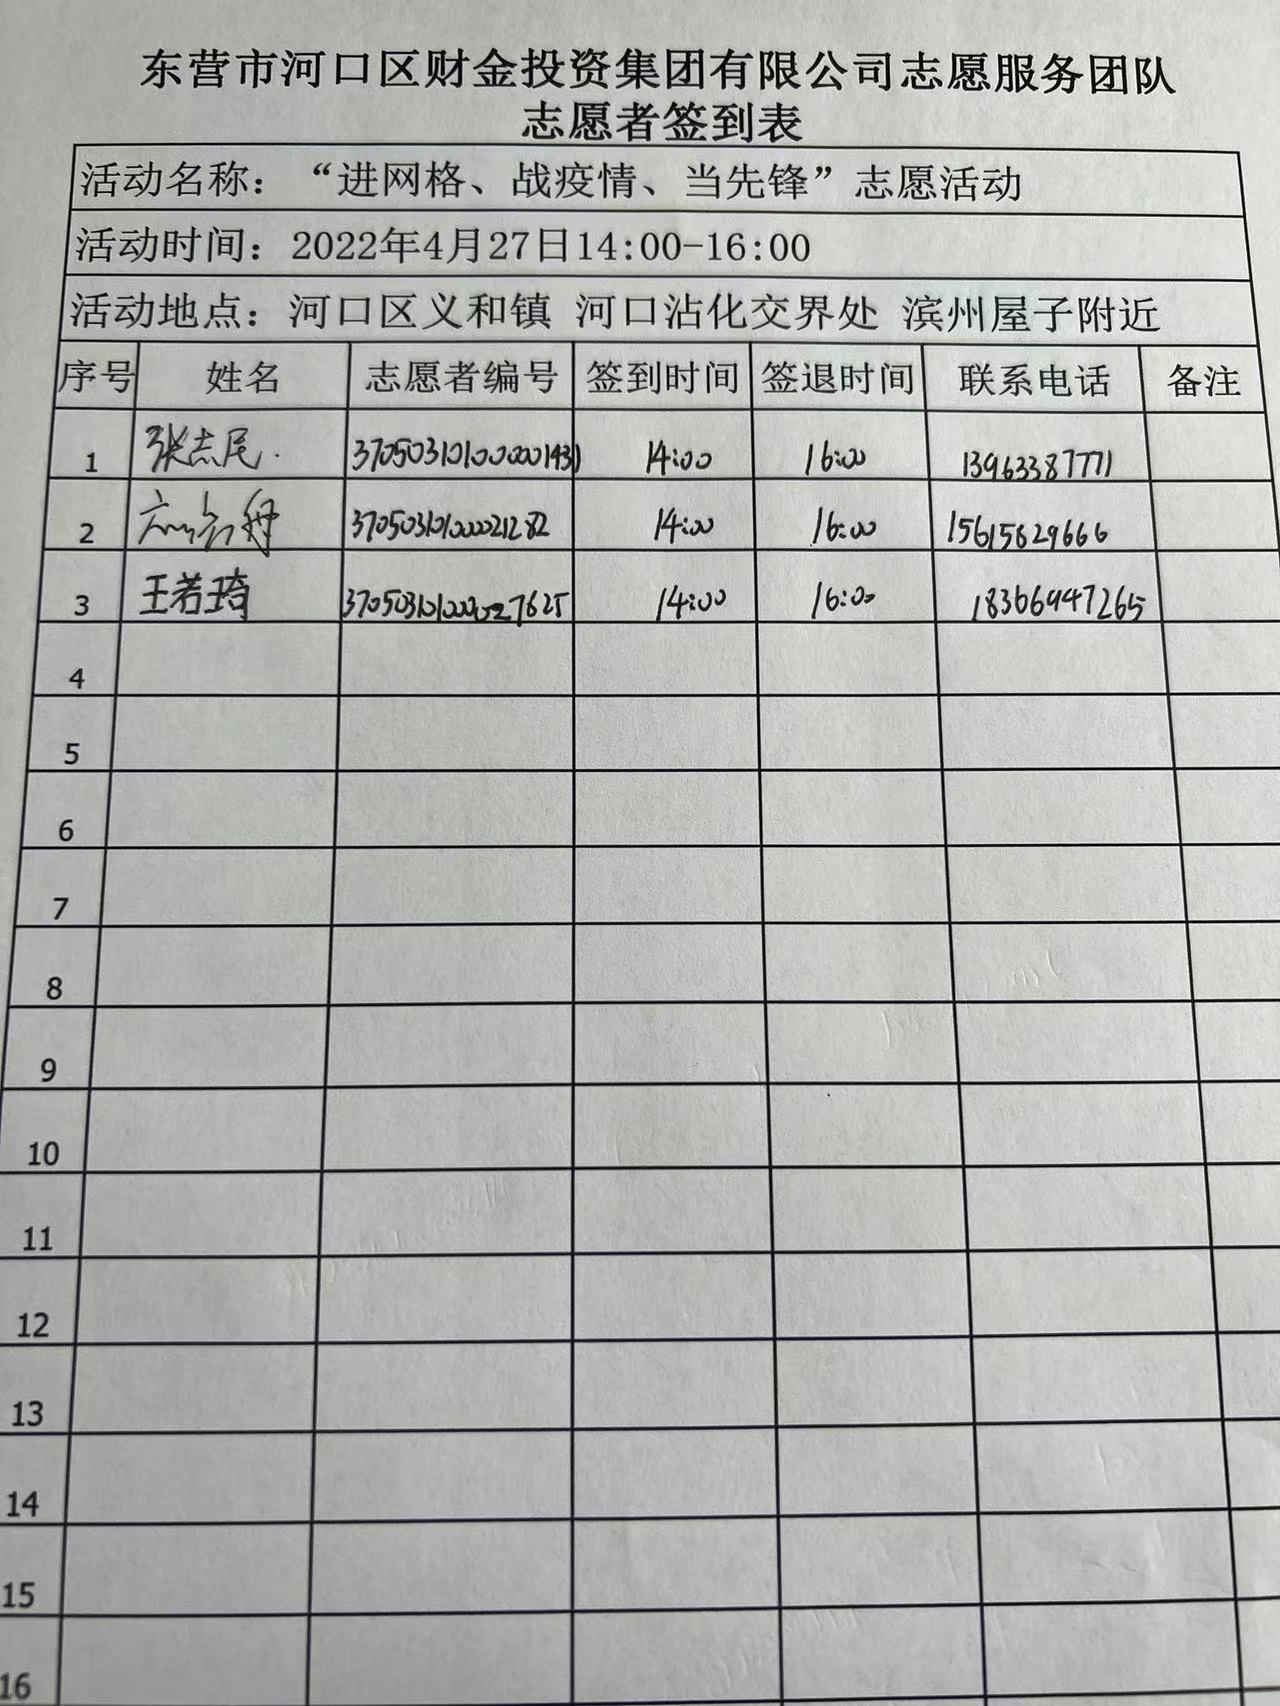 东营市河口区财金投资集团有限公司志愿服务团队
志愿者签到表
活动名称：“进网格、战疫情、当先锋”志愿活动
活动时间：2022年4月27日14:00-16:00
活动地点：河口区义和镇 河口沾化交界处 滨州屋子附近
序号 姓名 志愿者编号 签到时间 签退时间 联系电话 备注
1 14:00 16:00 13963387771
2 14:00 16:00 15615829666
3 王若琦 14:00 16:00 18366947265
4
5
6
7
8
9
10
11
12
13
14
15
16